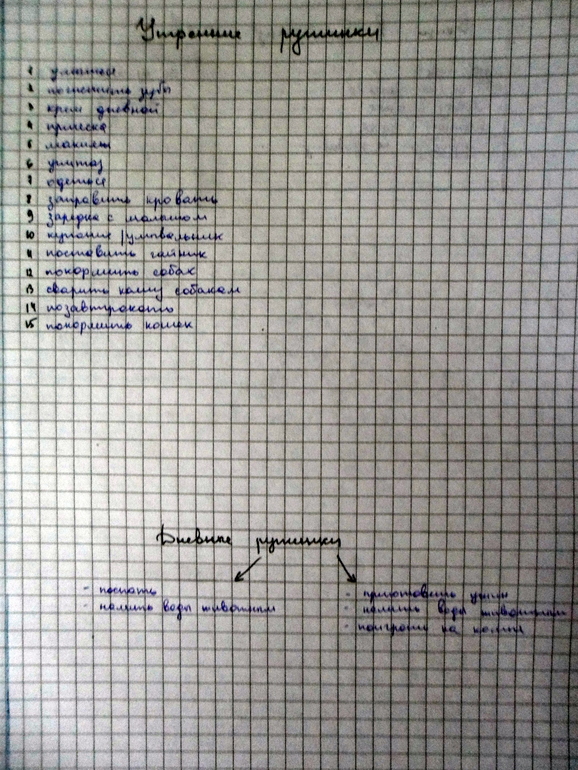 Утренние рутинки
1 умыться
2 почистить зубы
3 крем дневной
4 прическа
5 макияж
6 унитаз
7 одеться
8 заправить кровать
9 зарядка с малышом
10 купание/умывальник
11 поставить чайник
12 покормить собак
13 сварить кашу собакам
14 позавтракать
15 покормить кошек
Дневные рутинки
- поспать
- налить воды животным
- приготовить ужин
- налить воды животным
- поиграть на